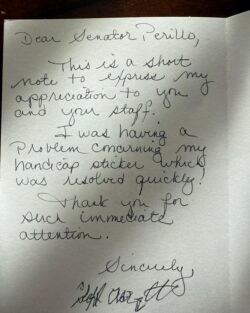 Dear Senator Perillo,
This is a short
note to express my
appreciation to you
and your staff.
I was having a
problem concerning my
handicap sticker which
was resolved quickly!
Thank you for
such immediate
attention.
Sincerely,